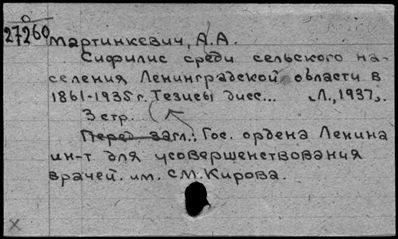 27260
Мартинкевич, А.А.
Сифилис среди сельского на-
селения Ленинградской области в
1861-1935 г. Тезисы дисс... Л., 1937.
3 стр.
Перед загл.: Гос. ордена Ленина
ин-т для усовершенствования
врачей. им. С.М. Кирова.